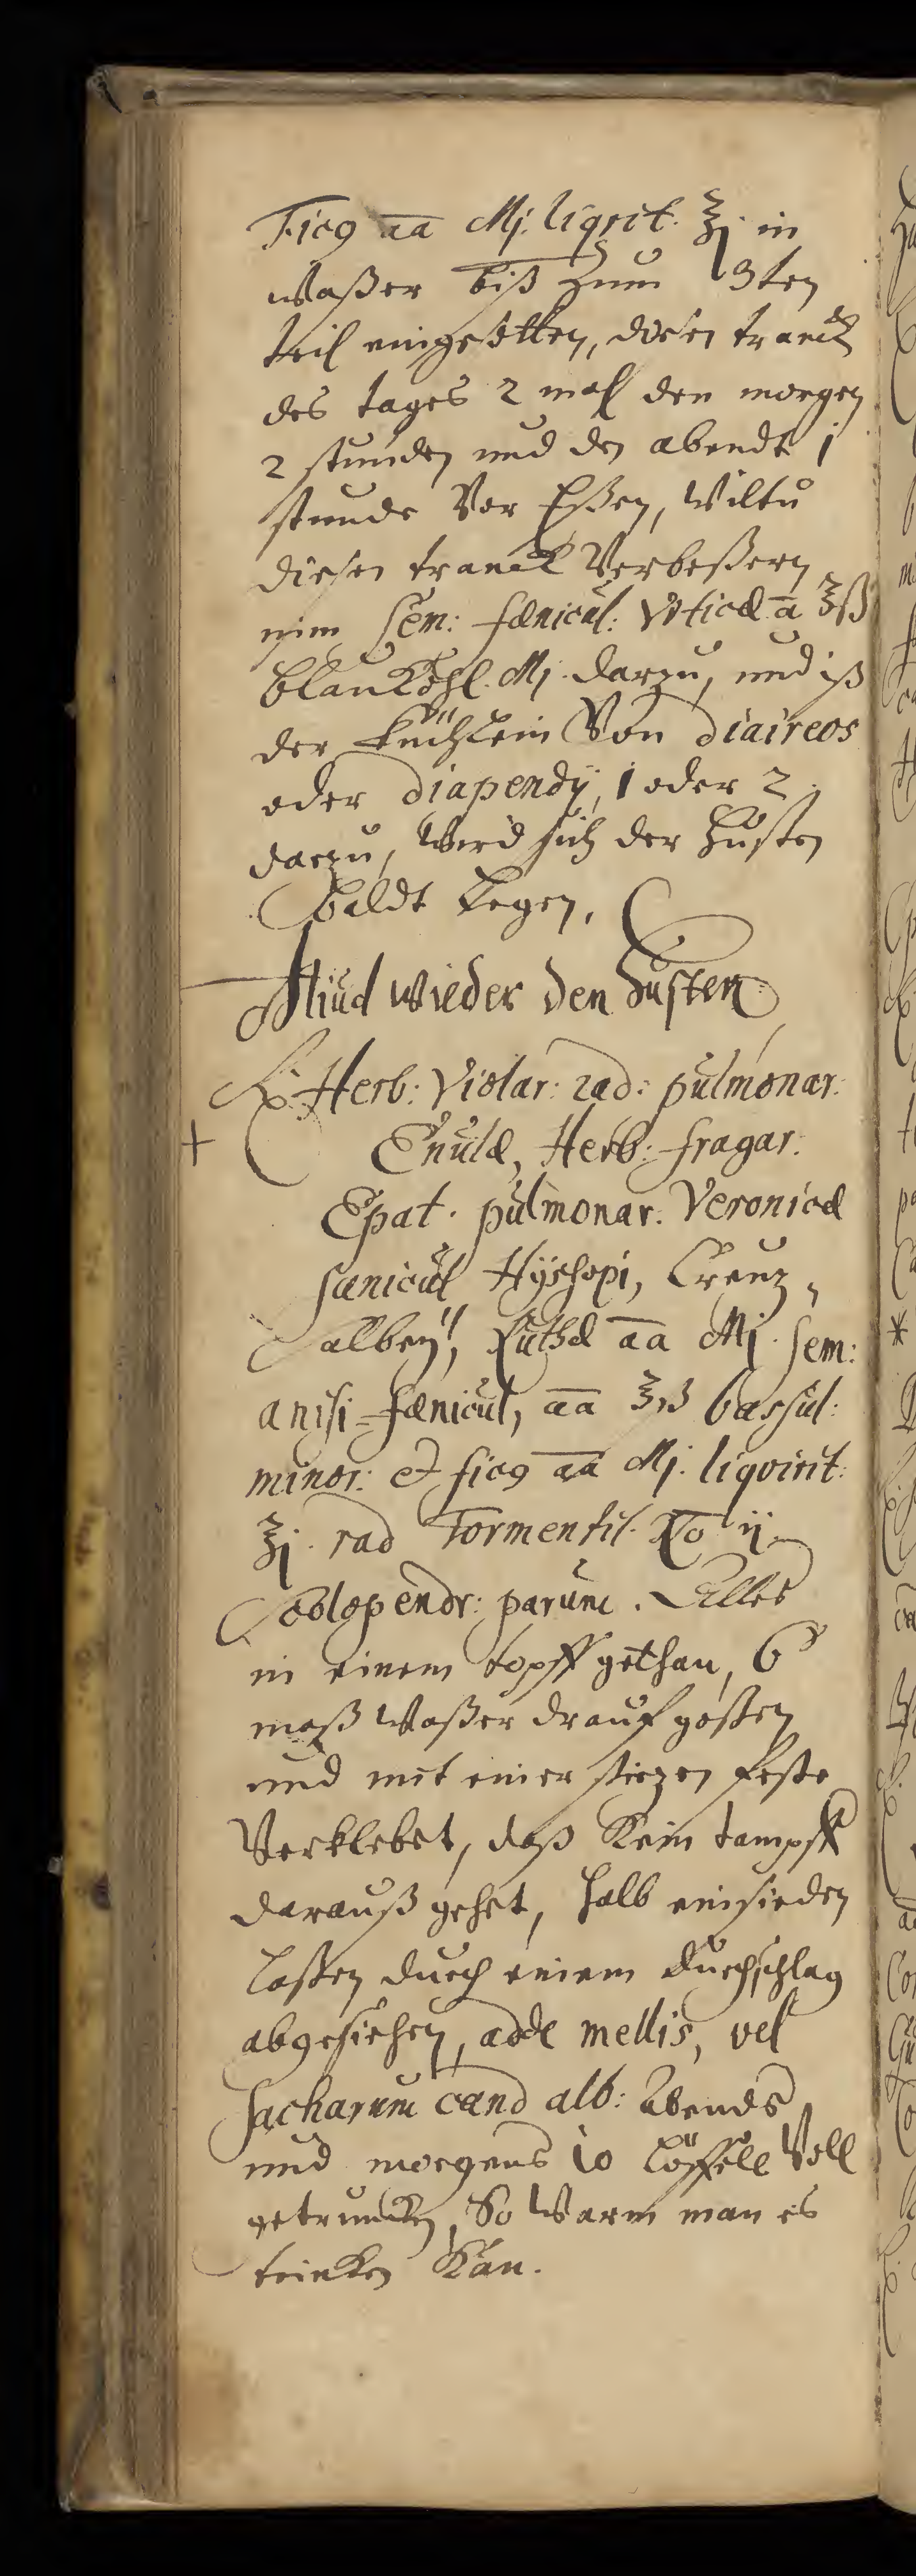 Ficꝯ aa Mj. liqrit. ℥j in
waßer biß zum 3ten
teil eingesotten, diesen tranck
des tages 2 mahl den morgen
2 stunden und den abendt 1
stunde Vor Eßen, Wiltu
diesen tranck Verbeßern
nim Sem: fænicul: Vrticæ a ℥ß
blau Kohl. Mj. darzu, und iß
der küchlein Von diaireos
oder diapendÿ, 1 oder 2
darzu, Wird sich der Husten
baldt Legen.
Aliud wieder den Husten
℞ Herb: Violar: rad: pulmonar:
+ Enulæ, Herb: fragar:
Epat. pulmonar. Veronicæ
sanicul Hÿssopi, Creuz,
Salbeÿ, Ruthæ aa Mj. sem:
anisi fænicul, aa ℥iß bassul:
minor: et ficꝯ aa Mj. liqvirit:
℥j. rad Tormentil. No ij
Scolopendr: parum. Alles
in einem topff gethan, 6
maß Waßer drauf goßen
und mit einer stirzen feste
Verklebet, daß Kein tampff
darauß gehet, halb einsieden
laßen durch einem durchschlag
abgesiehen, adde mellis, vel
sacharum cand alb: Abends
und morgens 10 löffell Voll
getruncken, So Warm man es
trinken Kan.